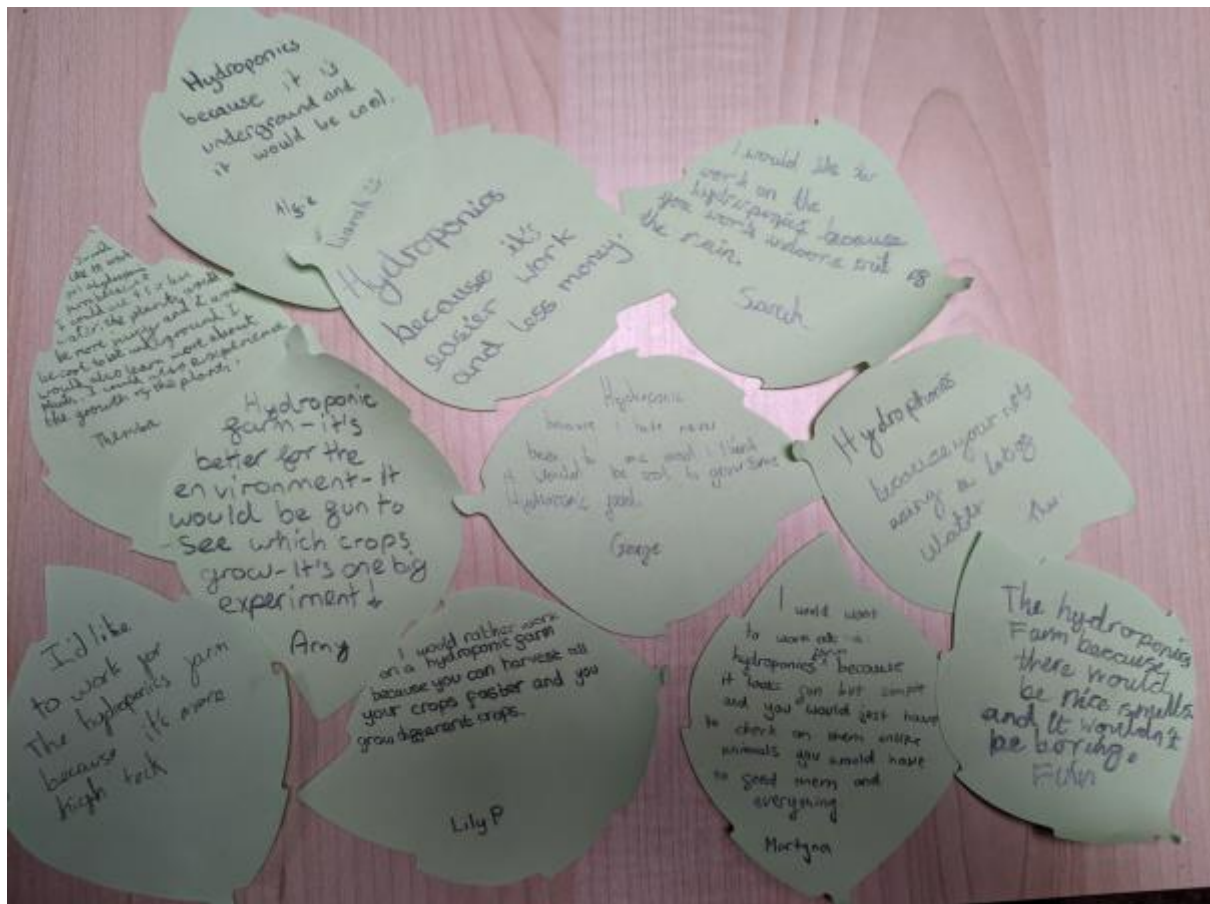 Hydroponics
because it is
underground and
it would be cool.
Hydroponics
because it's
easier work
and less money.
I would like to
work on the
hydroponics because
you work indoors out of
the rain.
Sarah
would
like to work
on
farm because
I would
water the plants would
be more juicy and it would
be cool to be underground. I
would also learn more about
I would also
the growth of the plants!
Themba
Hydroponic
farm - it's
better for the
environment - It
would be fun to
see which crops
grow - It's one big
experiment!
Amy
Hydroponic
because I have never
been to one and I think
it would be cool to grow some
Hydroponic food.
George
Hydrophonics
because your not
using a lot of
water
I'd like
to work for
The hydroponics farm
because it's more
high teck
I would rather work
on a hydroponic farm
because you can harvest all
your crops faster and you
grow different crops.
Lily P
I would want
to work at a
farm
hydroponics because
it looks fun but simple
and you would just have
to check on them unlike
animals you would have
to feed them and
everything
Martyna
The hydroponics
Farm because
there would
be nice smells
and it wouldn't
be boring.
Finn